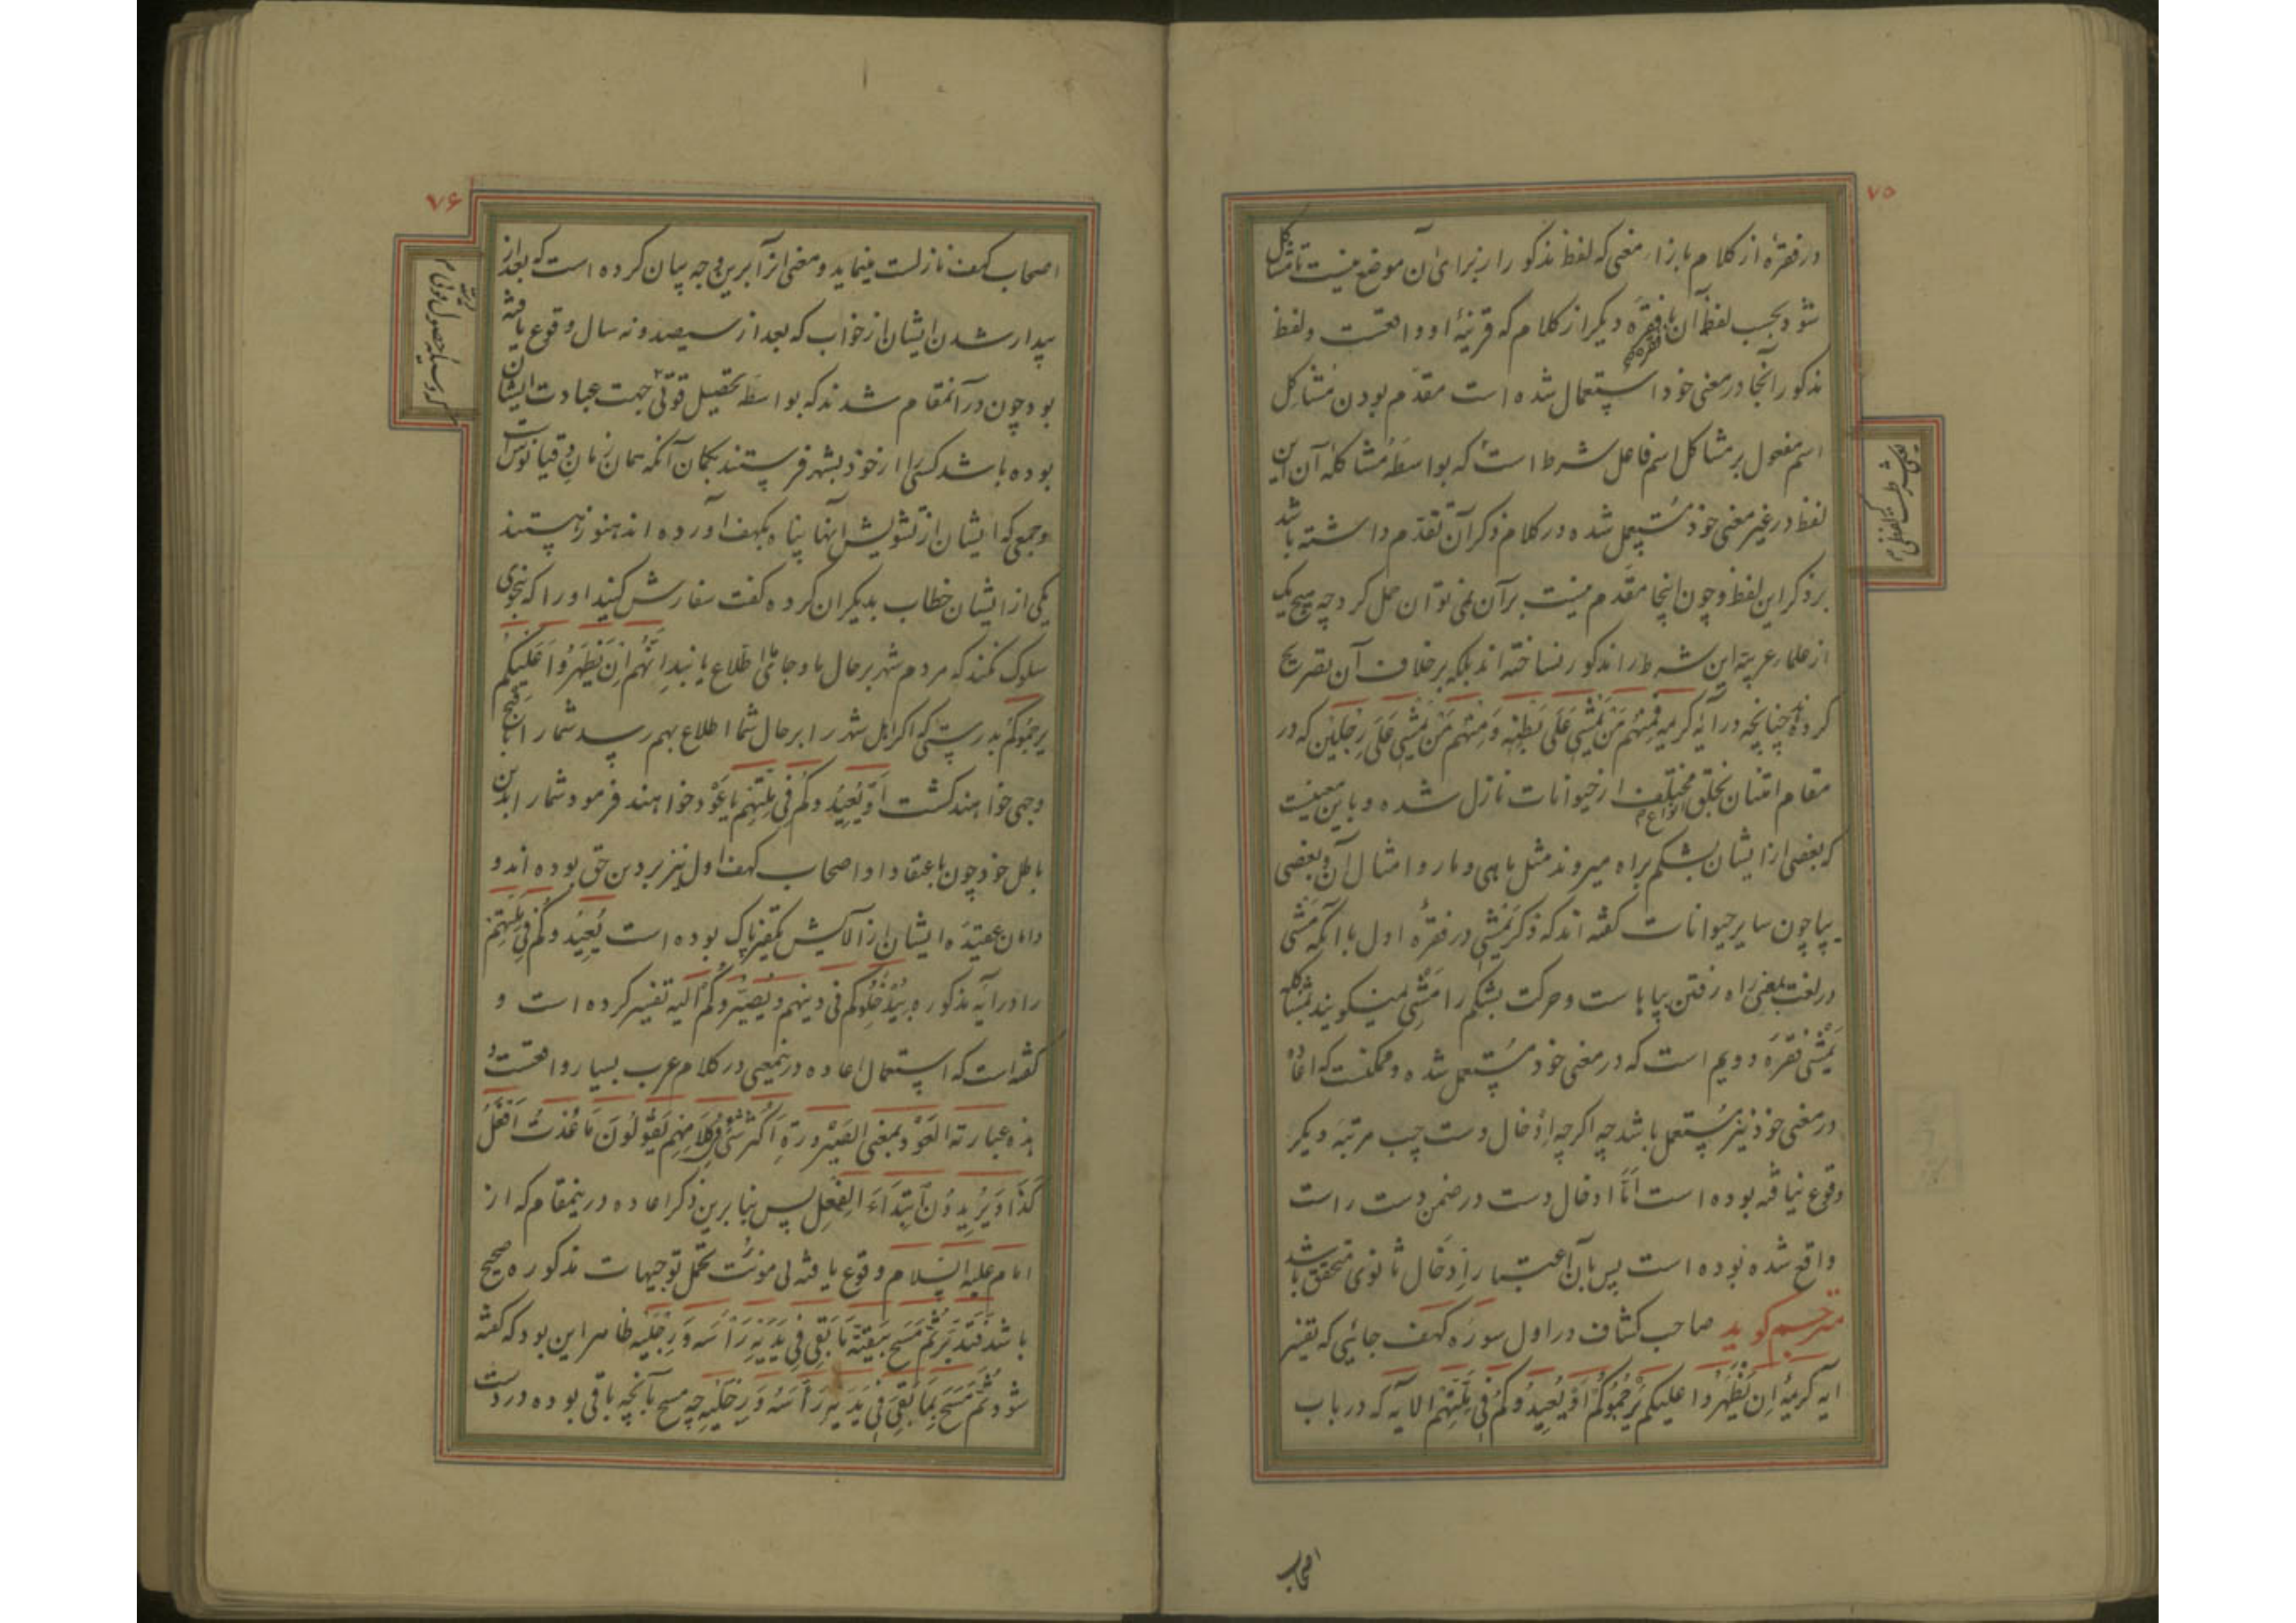 ۷۵
در فقرهٔ از کلام بازاء معنی که لفظ مذکور از برای آن موضوع نیست تا مشاکل
شود بحسب لفظ آن با فقره دیگر از کلام که قرینهٔ او واقعست و لفظ
مذکور آنجا در معنی خود استعمال شده است مقدم بودن مشاکل
اسم مفعول بر مشاکل اسم فاعل شرط است که بواسطهٔ مشاکلهٔ آن این
لفظ در غیر معنی خود مستعمل شده در کلام ذکر آن تقدم داشته باشد
بر ذکر این لفظ و چون اینجا مقدم نیست بر آن نمی توان حمل کرد چه هیچ یک
از علماء عربیه این شرط را مذکور نساخته اند بلکه برخلاف آن تصریح
کرده اند چنانچه در آیهٔ کریمه فَمِنْهُم مَن یَمْشِی عَلَی بَطْنِهِ وَمِنْهُم مَن یَمْشِی عَلَی رِجْلَیْنِ که در
مقام امتنان بخلق انواع مختلف از حیوانات نازل شده و باین معنیست
که بعضی از ایشان بشکم براه میروند مثل ماهی و مار و امثال آن و بعضی
بپا چون سایر حیوانات گفته اند که ذکر یمشی در فقرهٔ اول با آنکه مشی
در لغت بمعنی راه رفتن بپاهاست و حرکت بشکم را مشی نمیگویند بمشاکله
یمشی فقره دویم است که در معنی خود مستعمل شده و ممکنست که اعاده
در معنی خود نیز مستعمل باشد چه اگرچه ادخال دست چپ مرتبه دیگر
وقوع نیافته بوده است اما ادخال دست در ضمن دست راست
واقع شده بوده است پس بآن اعتبار ادخال ثانوی متحقق باشد
مترجم گوید صاحب کشاف در اول سوره کهف جائی که تفسیر
آیه کریمهٔ اِن یَظْهَرُوا علیکم یَرْجُمُوکُمْ اَوْ یُعِیدُوکُمْ فِی مِلَّتِهِمْ الآیه که در باب
اصحاب
۷۶
اصحاب کهف نازلست مینماید و معنی آنرا برین وجه بیان کرده است که بعد از
بیدار شدن ایشان از خواب که بعد از سیصد و نه سال وقوع یافته
بود چون در آنمقام شدند که بواسطهٔ تحصیل قوتی جهت عبادت ایشان
بوده باشد کسی را از خود بشهر فرستند بگمان آنکه همان زمان دقیانوس است
و جمعی که ایشان از تشویش آنها پناه بکهف آورده اند هنوز هستند
یکی از ایشان خطاب بدیگران کرده گفت سفارش کنید او را که بنحوی
سلوک نکند که مردم شهر بر حال ما و جای ما اطلاع یابند اِنَّهُم اِن یَظْهَرُوا عَلَیْکُم
یرجموکم بدرستی که اگر اهل شهر را بر حال شما اطلاع بهم رسد شما را باقبح
وجهی خواهند کشت اَوْ یُعِیدُوکُمْ فِی مِلَّتِهِم یا عود خواهند فرمود شما را بدین
باطل خود چون باعتقاد او اصحاب کهف اول نیز بر دین حق بوده اند و
دامان عقیدهٔ ایشان از آلایش کفر پاک بوده است یُعِیدُوکُمْ فِی مِلَّتِهِم
را در آیهٔ مذکوره بیُدْخِلُوکم فی دینهم و یُصَیِّروکم الیه تفسیر کرده است و
گفته است که استعمال اعاده درینمعنی در کلام عرب بسیار واقعست و
هذه عبارته العَوْد بمعنی الصَیْرورَةِ اَکْثَرُ شَیْءٍ فِی کَلَامِهِم یَقُولُونَ مَا عُدْتُ اَفْعَلُ
کَذَا وَ یُرِیدُونَ اِبْتِدَاءَ الفِعْلِ پس بنا برین ذکر اعاده درینمقام که از
امام علیه السلام وقوع یافته بی مونت تحمل توجیهات مذکوره صحیح
باشد فَتَدَبَّر ثُمَّ مَسَحَ بَقِیَّةَ مَا بَقِیَ فِی یَدَیْهِ رَأْسَه وَ رِجْلَیْه ظاهر این بود که گفته
شود ثُمَّ مَسَحَ بِمَا بَقِیَ فِی یَدَیْهِ رَأْسَهُ وَ رِجْلَیْهِ چه مسح بآنچه باقی بوده در دست